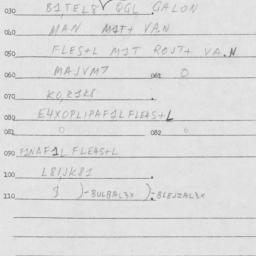 030 81,TEL8 QGL GALON
040 MAN M1T+ VAN
050 FLES+L M1T ROJT+ VA.N
060 MAJVM7 061 0
070 KO,R1K8 .
080 E4XOPLIPAF1LFLE4S+L
081 0 082 0
090 F1NAF1L FLE4S+L
100 L81JK81 .
110 )-BULBAL3X )-BLBJZAL3X